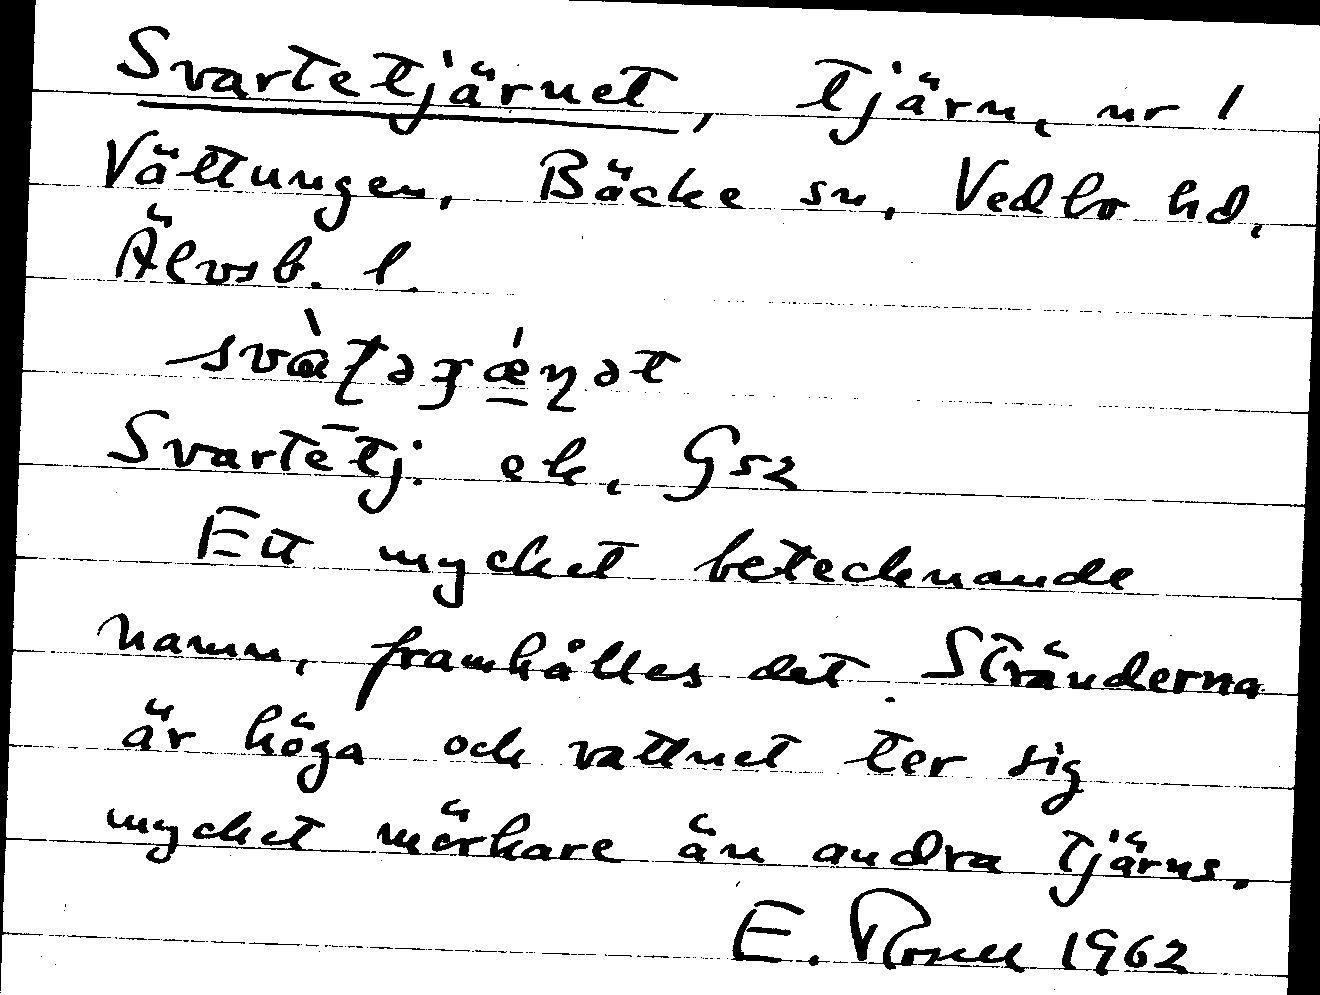 Svartetjärnet, tjärn, nr 1
Vättungen, Bäcke sn, Vedbo hd,
Älvsb. l.
Svartetj. ek. G52
Ett mycket betecknande
namn, framhålles det. Stränderna
är höga och vattnet ter sig
mycket mörkare än andra tjärns.
E. 1962